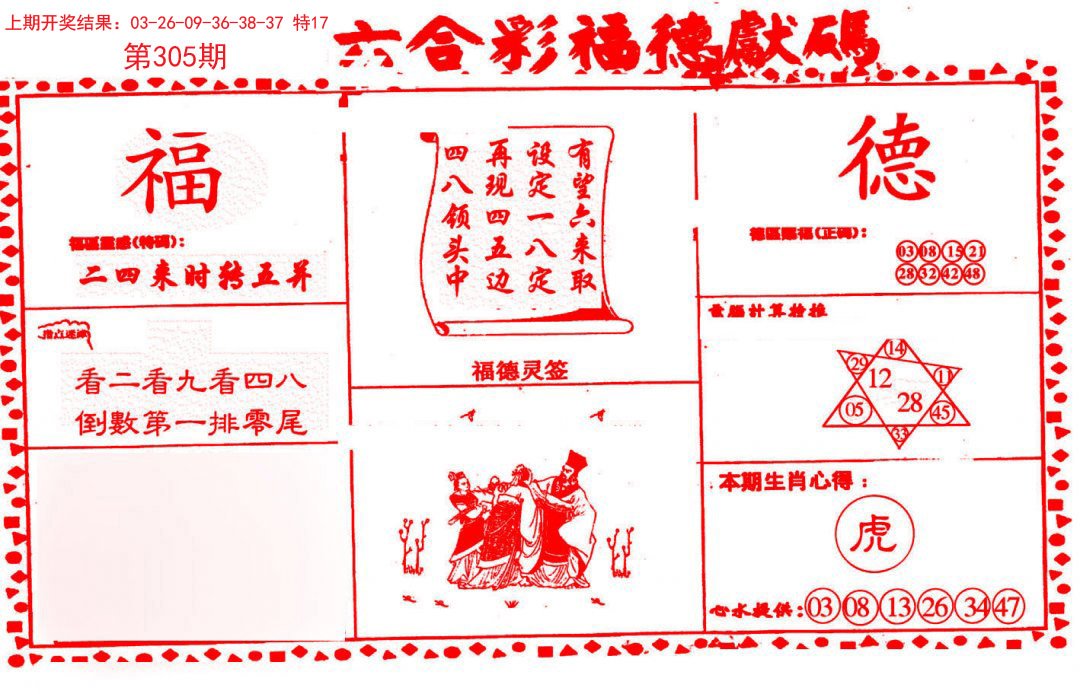 上期开奖结果：03-26-09-36-38-37 特17
第305期
六合彩福德獻碼
福
福區靈感(特碼)：
二四来时转五并
指点迷津
看二看九看四八
倒數第一排零尾
有望六来取
设定一八定
再现四五边
四八领头中
福德灵签
德
德區賜福(正碼)：
03 08 15 21
28 32 42 48
電腦計算搶推
14
29 12 11
05 28 45
33
本期生肖心得：
虎
心水提供：03 08 13 26 34 47